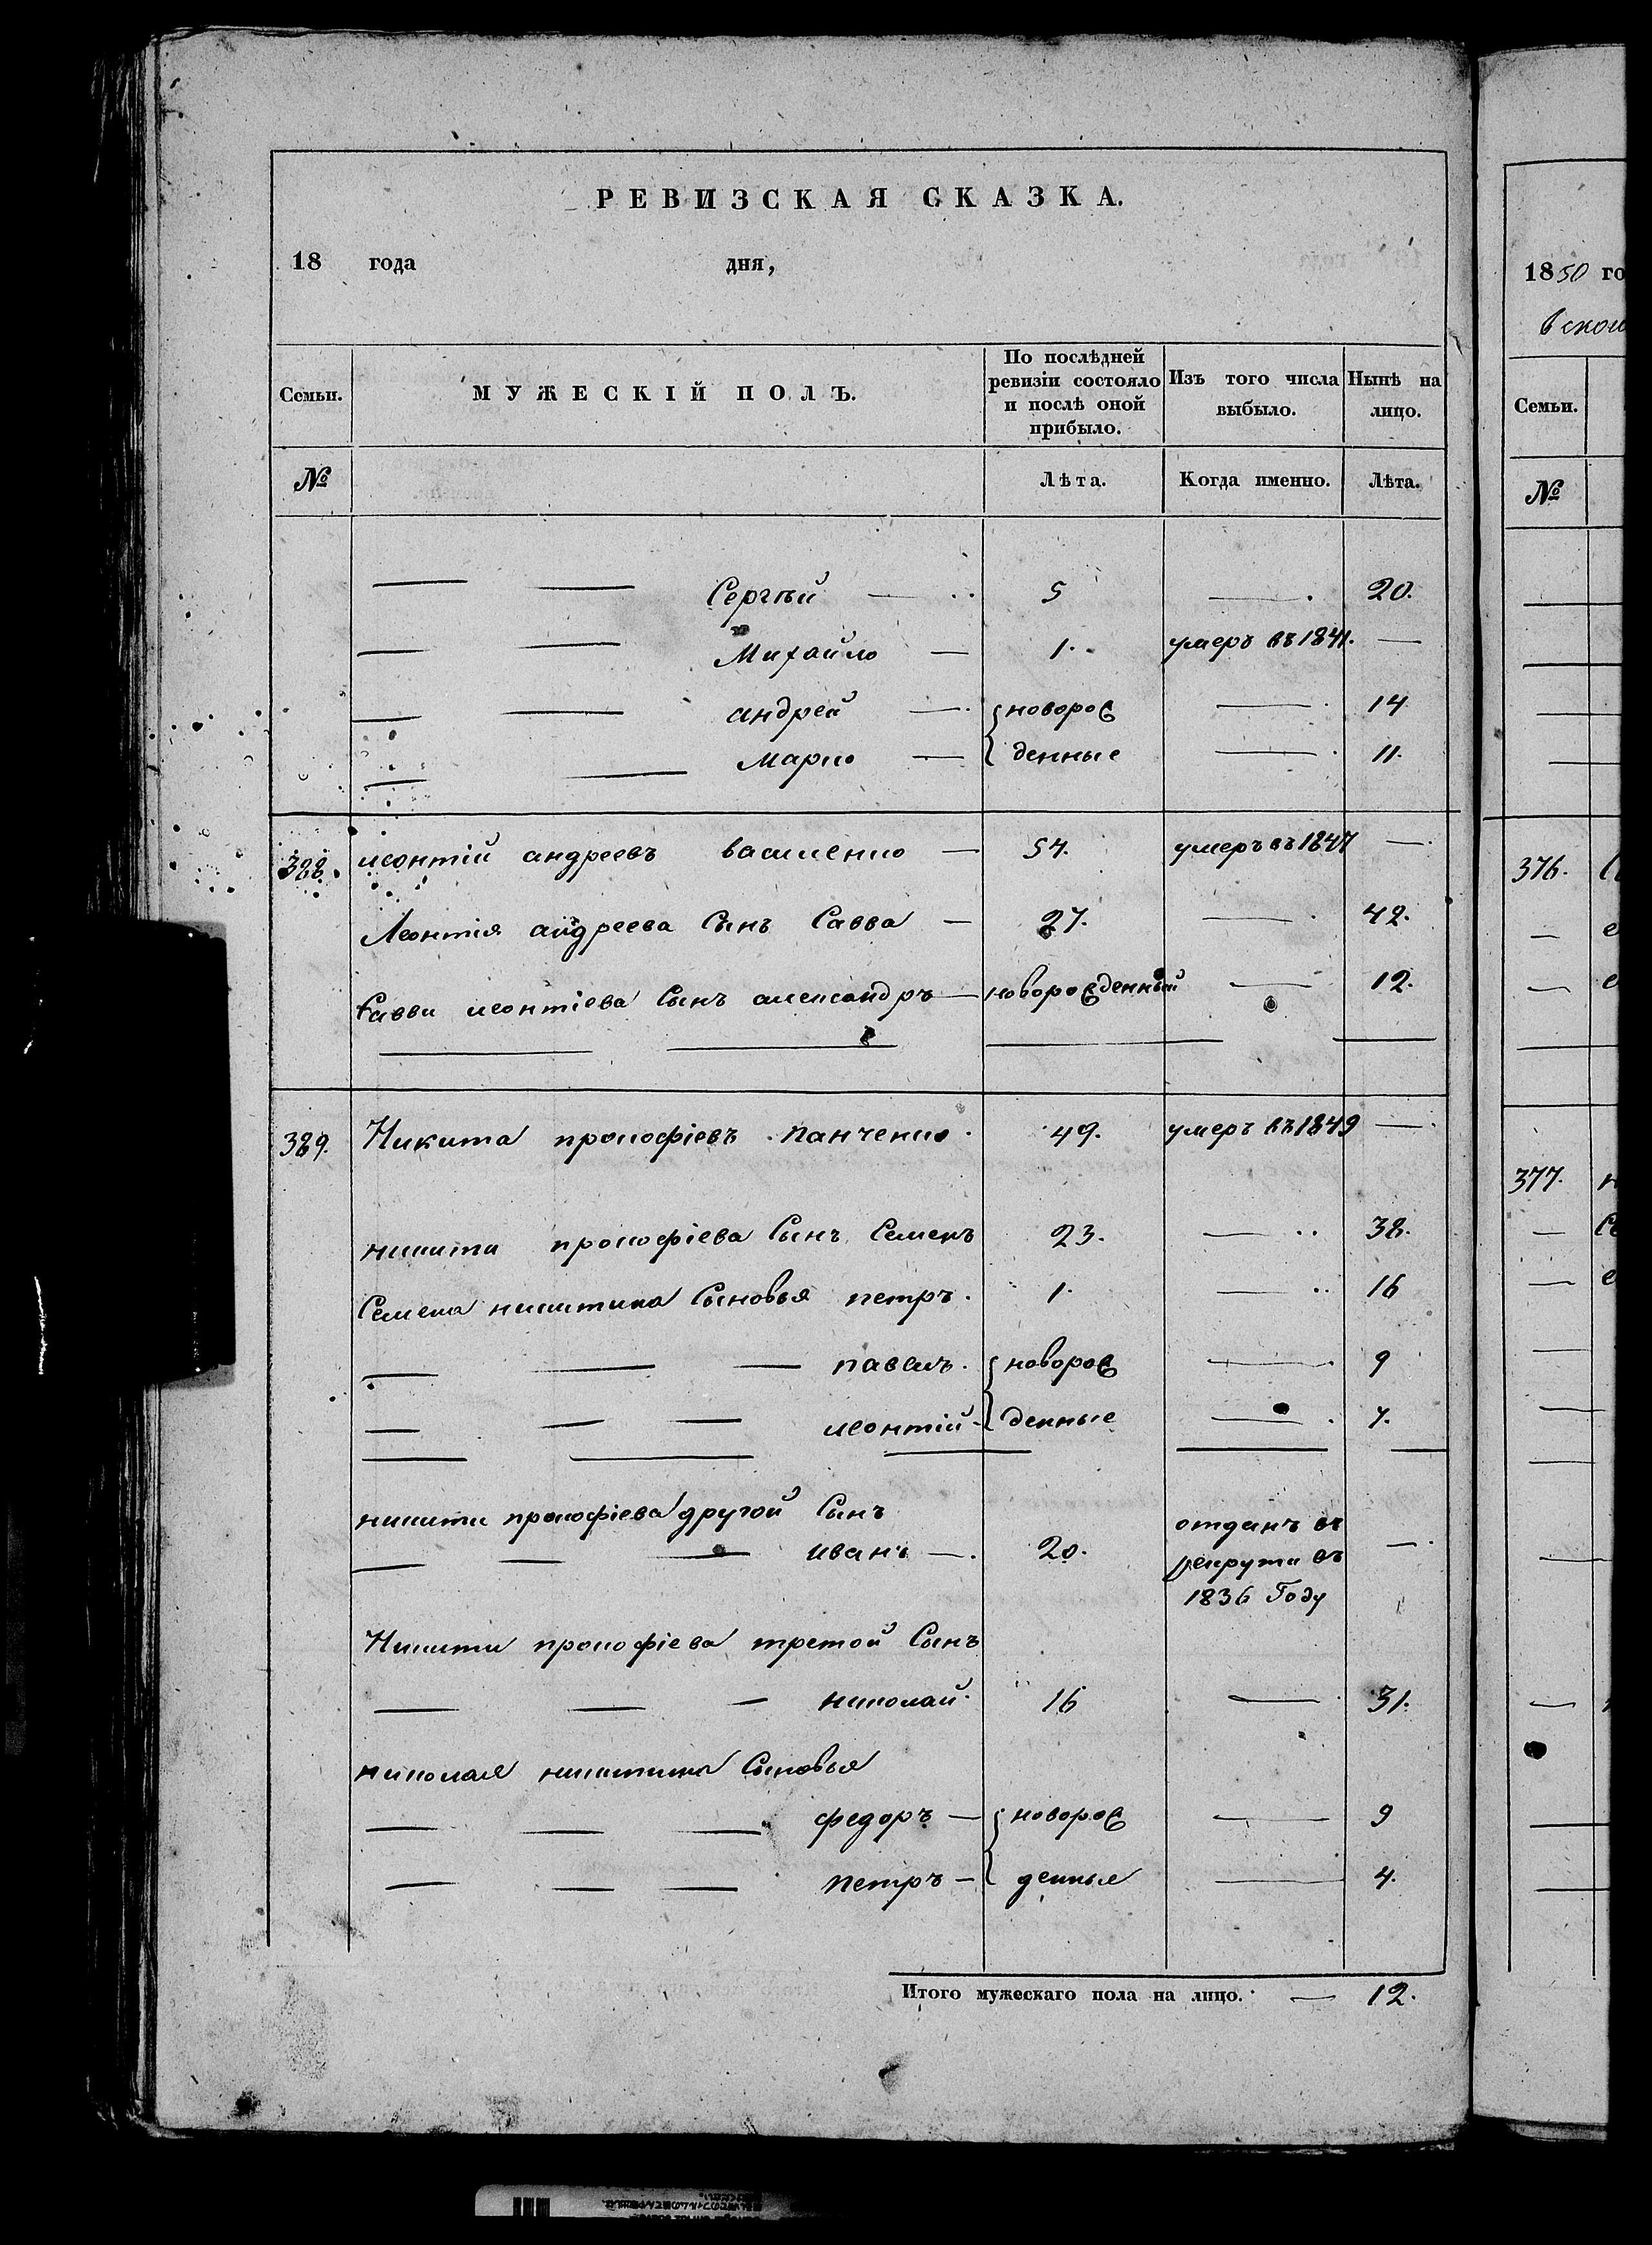 РЕВИЗСКАЯ СКАЗКА.
18 года дня,
Семьи. МУЖЕСКІЙ ПОЛЪ. По послѣдней ревизіи состояло и послѣ оной прибыло. Изъ того числа выбыло. Нынѣ на лицо.
№ Лѣта. Когда именно. Лѣта.
— — Сергѣй — 5 — 20.
— — Михайло — 1. умеръ въ 1841. —
— — андрей — новорож — 14
— — Марко — денные — 11.
388. леонтій андреевъ василенко — 54. умеръ въ 1847 —
Леонтія андреева Сынъ Савва — 27. — 42.
Савви леонтіева Сынъ александръ — новорожденный — 12.
389. Никита прокофіевъ панченко. 49. умеръ въ 1849 —
никити прокофіева Сынъ Семенъ 23. — 38.
Семена никитина Сыновья петръ. 1. — 16
— — — павелъ. новорож — 9
— — — леонтій. денные — 7.
никити прокофіева другой Сынъ
— — — иванъ — 20. отданъ въ рекрути въ 1836 Году —
Никити прокофіева третой Сынъ
— — — николай. 16 — 31.
николая никитина Сыновья
— — — федоръ — новорож — 9
— — — петръ — денные — 4.
Итого мужескаго пола на лицо. — 12.
1850 го
Семьи.
№
376.
377.